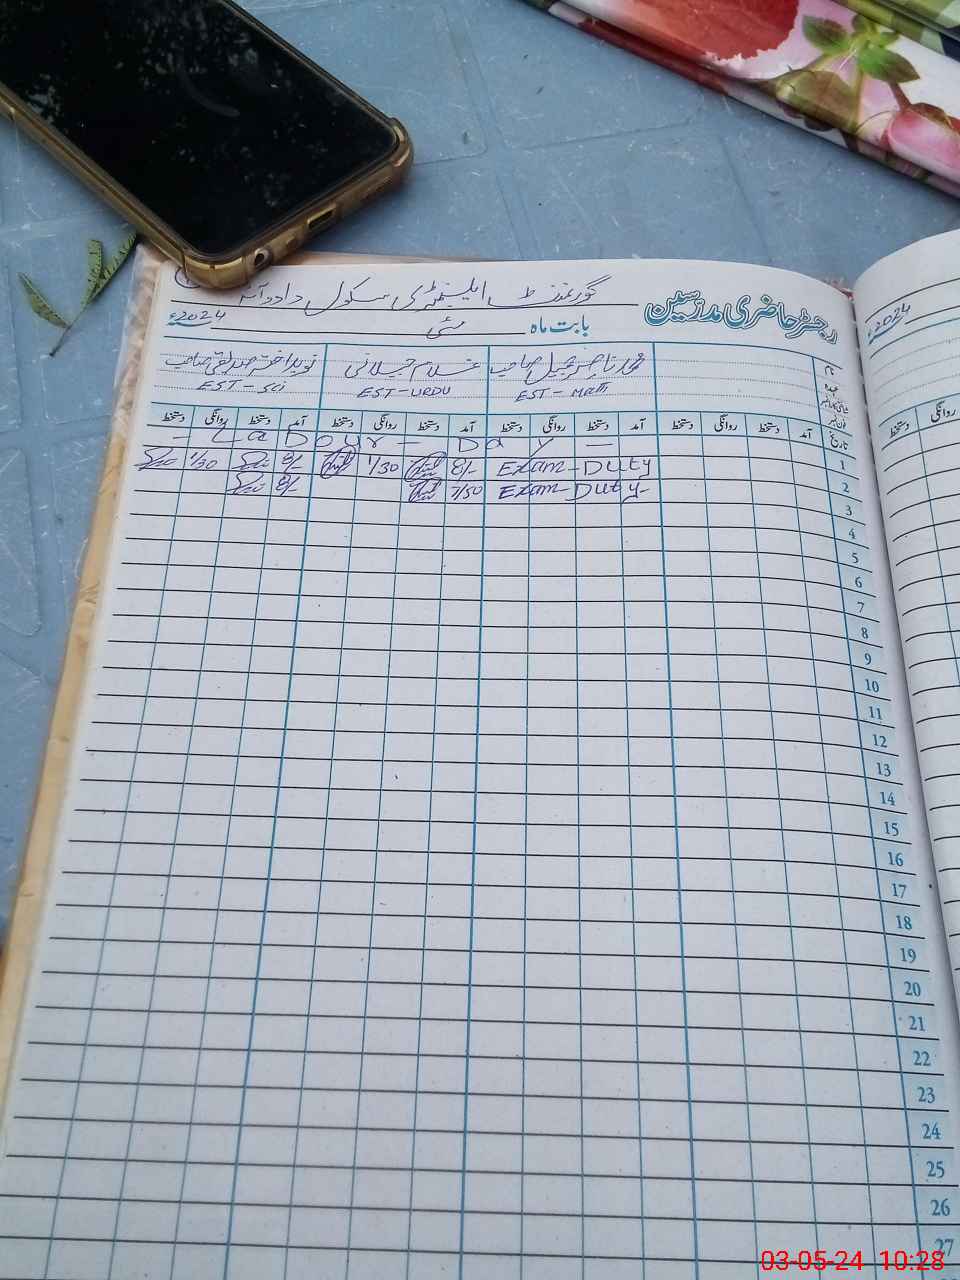 گورنمنٹ ایلیمنٹری سکول داد
رجسٹر حاضری مدرسین
بابت ماہ مئی 2024ء
2024ء
نام
محمد ناصر جمیل صاحب
غلام جیلانی
نوید اختر صدیقی صاحب
عہدہ
EST - Math
EST - URDU
EST - Sci
تاریخ آمد دستخط روانگی دستخط آمد دستخط روانگی دستخط آمد دستخط روانگی دستخط آمد دستخط روانگی دستخط
روانگی دستخط
1 - La Bour - Day -
2 8/- 1/30 8/- 1/30 Exam - Duty
3 8/- 7/50 Exam - Duty -
4
5
6
7
8
9
10
11
12
13
14
15
16
17
18
19
20
21
22
23
24
25
26
27
03-05-24 10:28